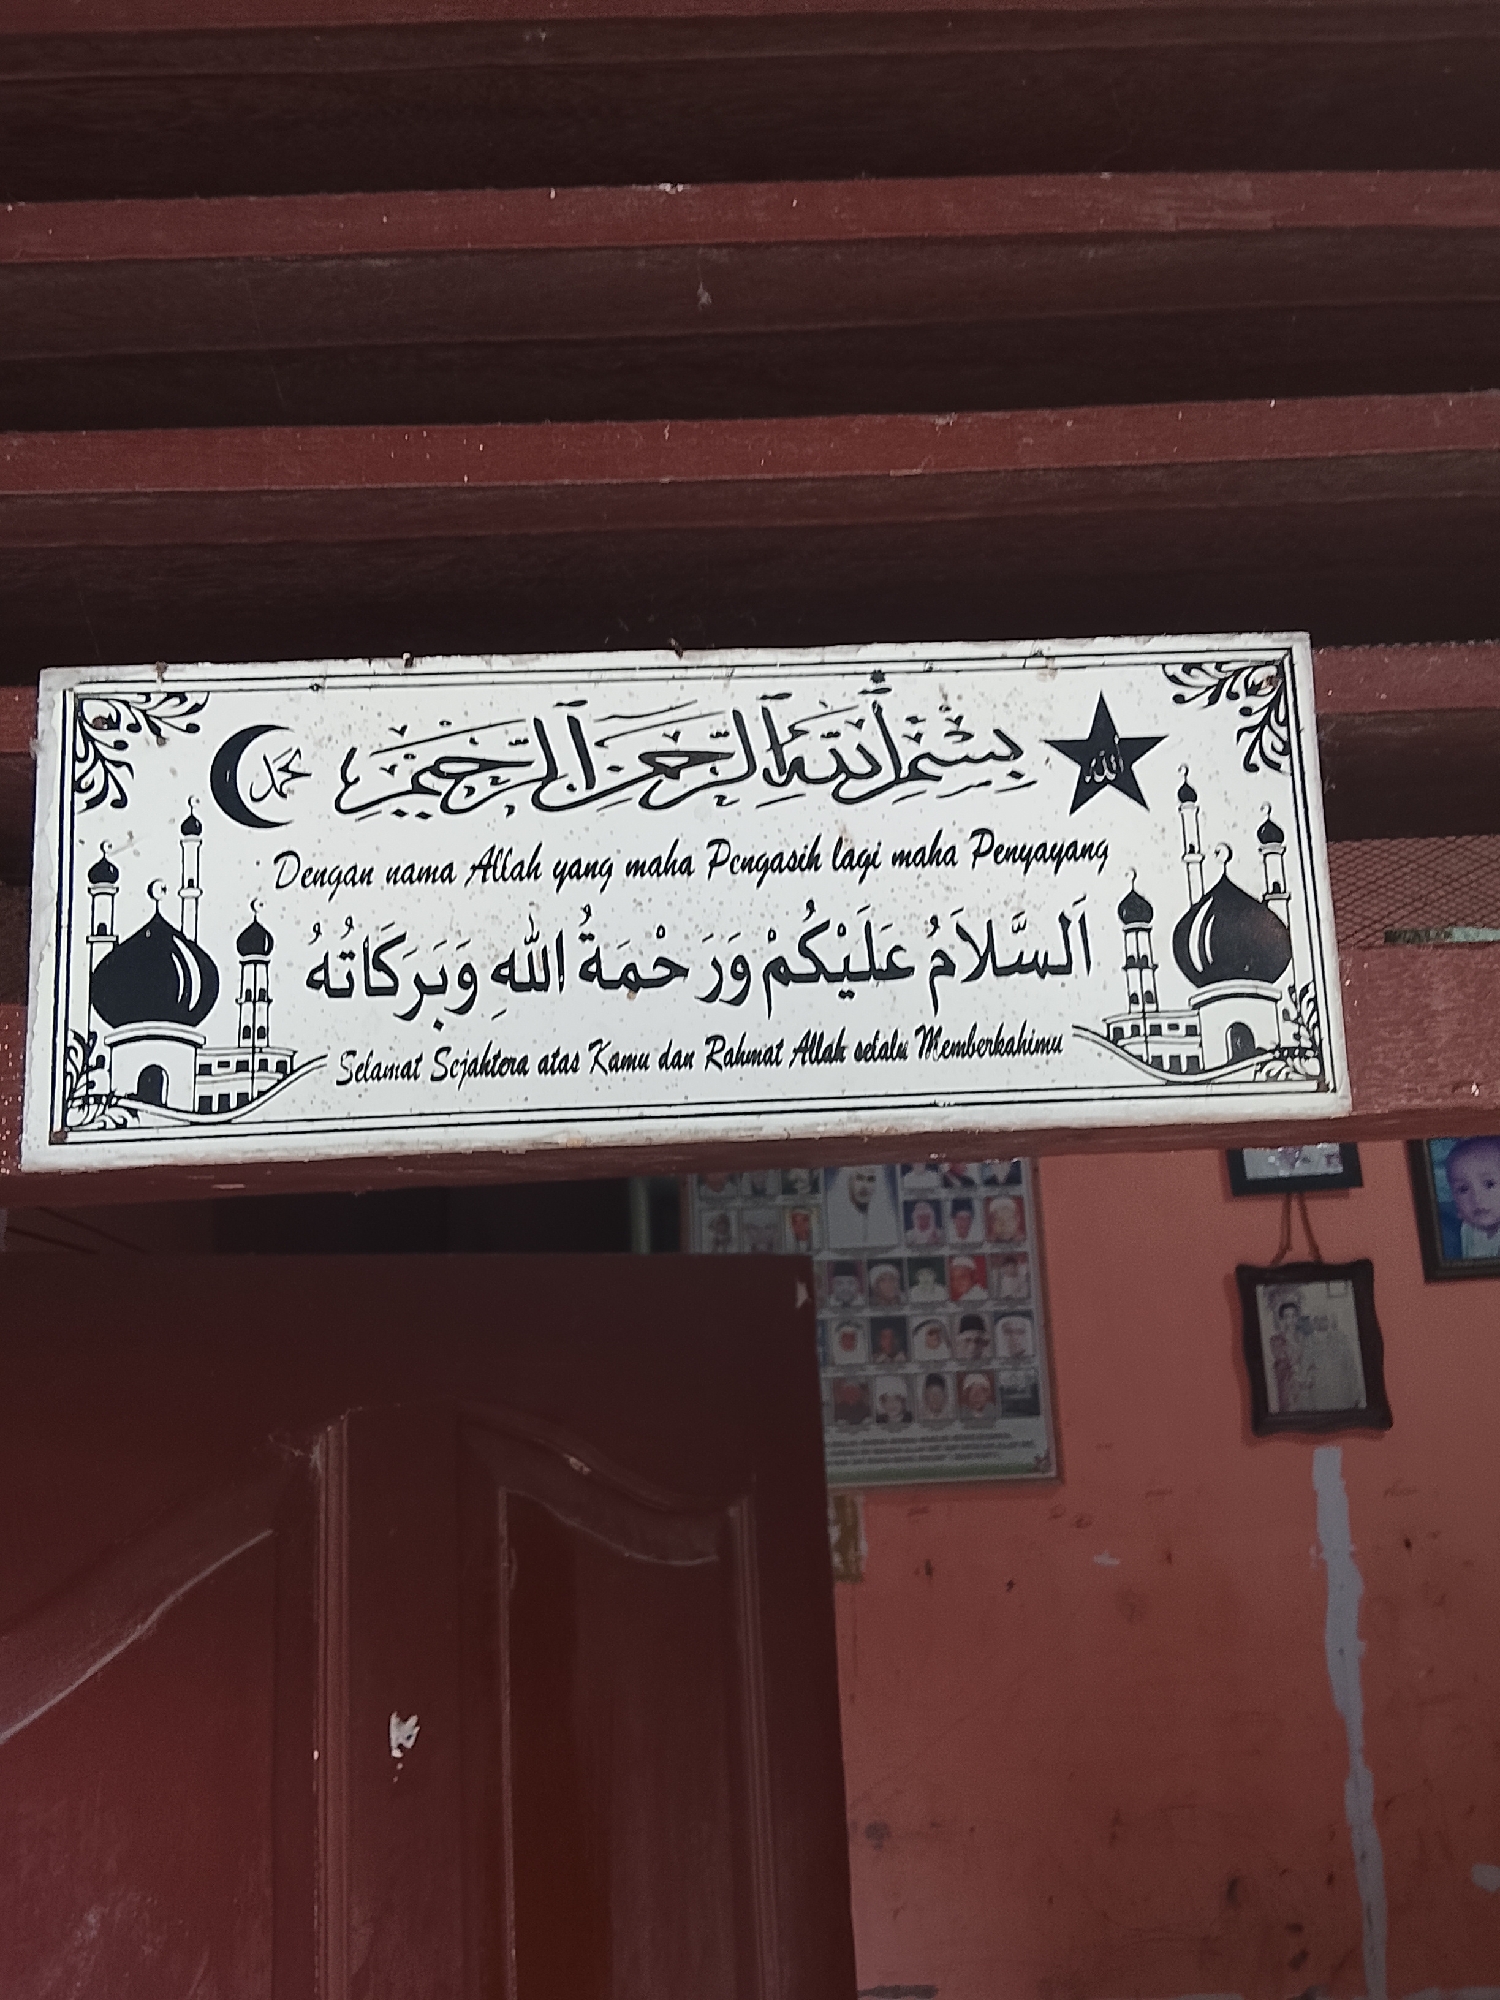 محمد بِسْمِ اللّٰهِ الرَّحْمٰنِ الرَّحِيْمِ الله
Dengan nama Allah yang maha Pengasih lagi maha Penyayang
اَلسَّلاَمُ عَلَيْكُمْ وَرَحْمَةُ اللهِ وَبَرَكَاتُهُ
Selamat Sejahtera atas Kamu dan Rahmat Allah selalu Memberkahimu